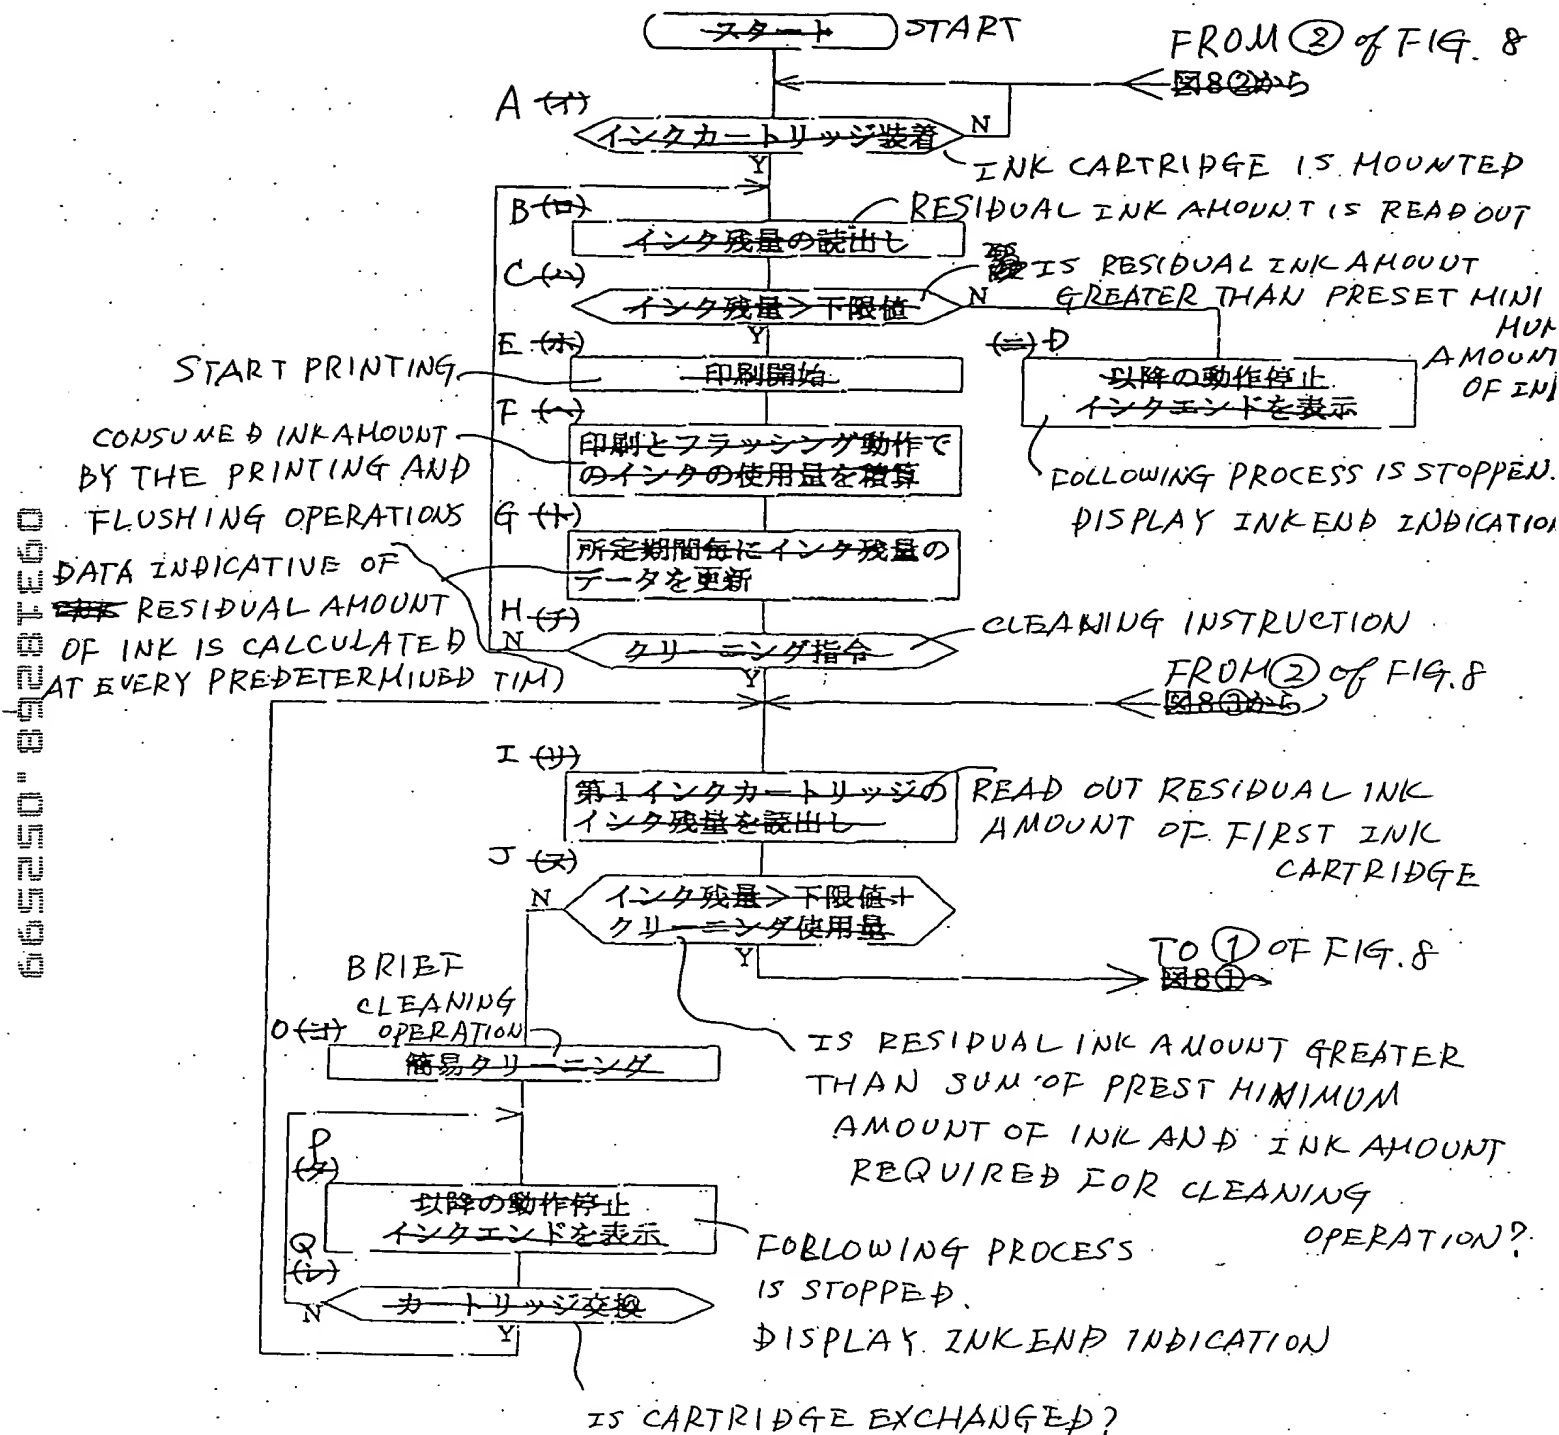 スタート START
FROM ② of FIG. 8
図8②から
A (イ)
インクカートリッジ装着 N
Y
INK CARTRIDGE IS MOUNTED
B (ロ)
RESIDUAL INK AMOUNT IS READ OUT
インク残量の読出し
C (ハ)
IS RESIDUAL INK AMOUNT
GREATER THAN PRESET MINI
MUM
AMOUNT
OF INK
インク残量>下限値 N
Y
E (ホ)
START PRINTING
印刷開始
(ニ) D
以降の動作停止
インクエンドを表示
FOLLOWING PROCESS IS STOPPEN.
DISPLAY INK END INDICATION
F (ヘ)
CONSUMED INK AMOUNT
BY THE PRINTING AND
FLUSHING OPERATIONS
印刷とフラッシング動作で
のインクの使用量を積算
G (ト)
DATA INDICATIVE OF
RESIDUAL AMOUNT
OF INK IS CALCULATED
AT EVERY PREDETERMINED TIM
所定期間毎にインク残量の
データを更新
H (チ)
N
クリーニング指令
Y
CLEANING INSTRUCTION
FROM ② of FIG. 8
図8③から
I (リ)
第1インクカートリッジの
インク残量を読出し
READ OUT RESIDUAL INK
AMOUNT OF FIRST INK
CARTRIDGE
J (ヌ)
N
インク残量>下限値+
クリーニング使用量
Y
TO ① OF FIG. 8
図8①へ
IS RESIDUAL INK AMOUNT GREATER
THAN SUM OF PREST MINIMUM
AMOUNT OF INK AND INK AMOUNT
REQUIRED FOR CLEANING
OPERATION?
BRIEF
CLEANING
OPERATION
O (ヨ)
簡易クリーニング
P
(タ)
以降の動作停止
インクエンドを表示
FOBLOWING PROCESS
IS STOPPED.
DISPLAY INK END INDICATION
Q
(レ)
N
カートリッジ交換
Y
IS CARTRIDGE EXCHANGED?